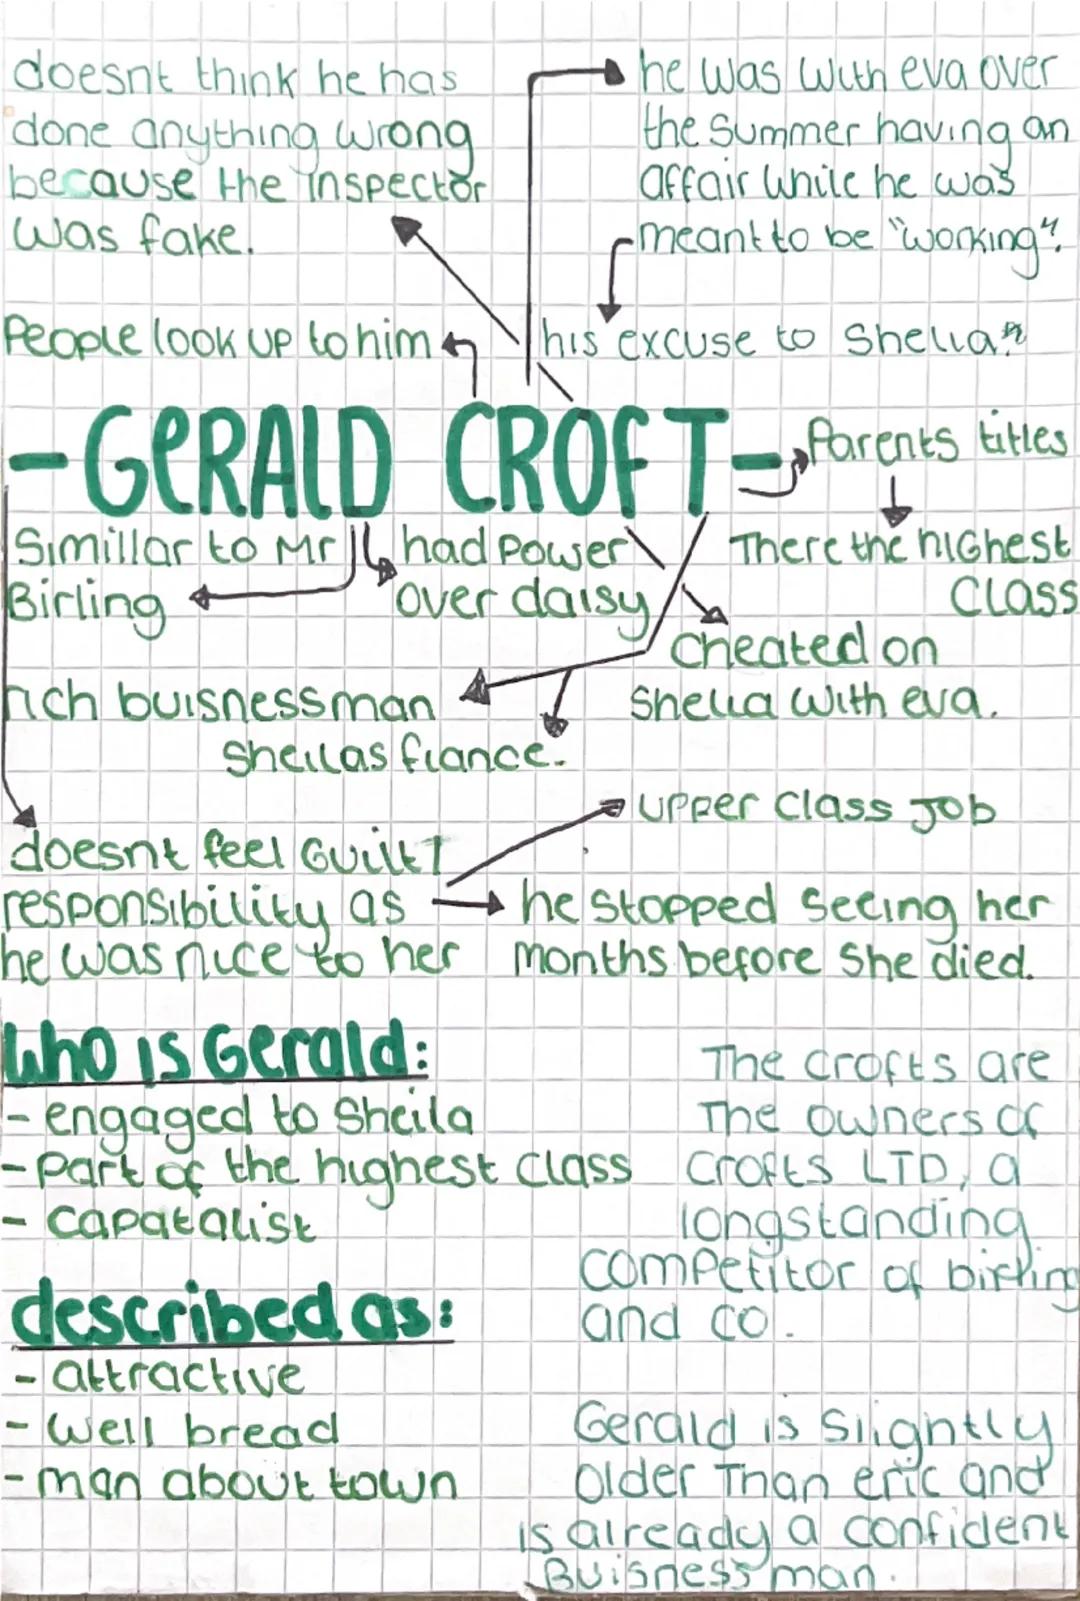 doesnt think he has
done anything wrong
because the inspector
was fake.
he was with eva over
the summer having an
affair while he was
meant to be "working".
People look up to him
his excuse to Sheila"
-GERALD CROFT-
Parents titles
There the highest
Class
Simillar to Mr
Birling
had power
over daisy
cheated on
Sheila with eva.
rich buisnessman
Sheilas fiance.
upper class Job
doesnt feel Guilt/
responsibility as
he was nice to her
he stopped seeing her
months before she died.
who is Gerald:
- engaged to Sheila
- part of the highest class
- capatalist
The crofts are
The owners of
Crofts LTD, a
longstanding
competitor of birling
and co.
described as:
- attractive
- well bread
- man about town
Gerald is Slightly
older Than eric and
is already a confident
Buisness man.